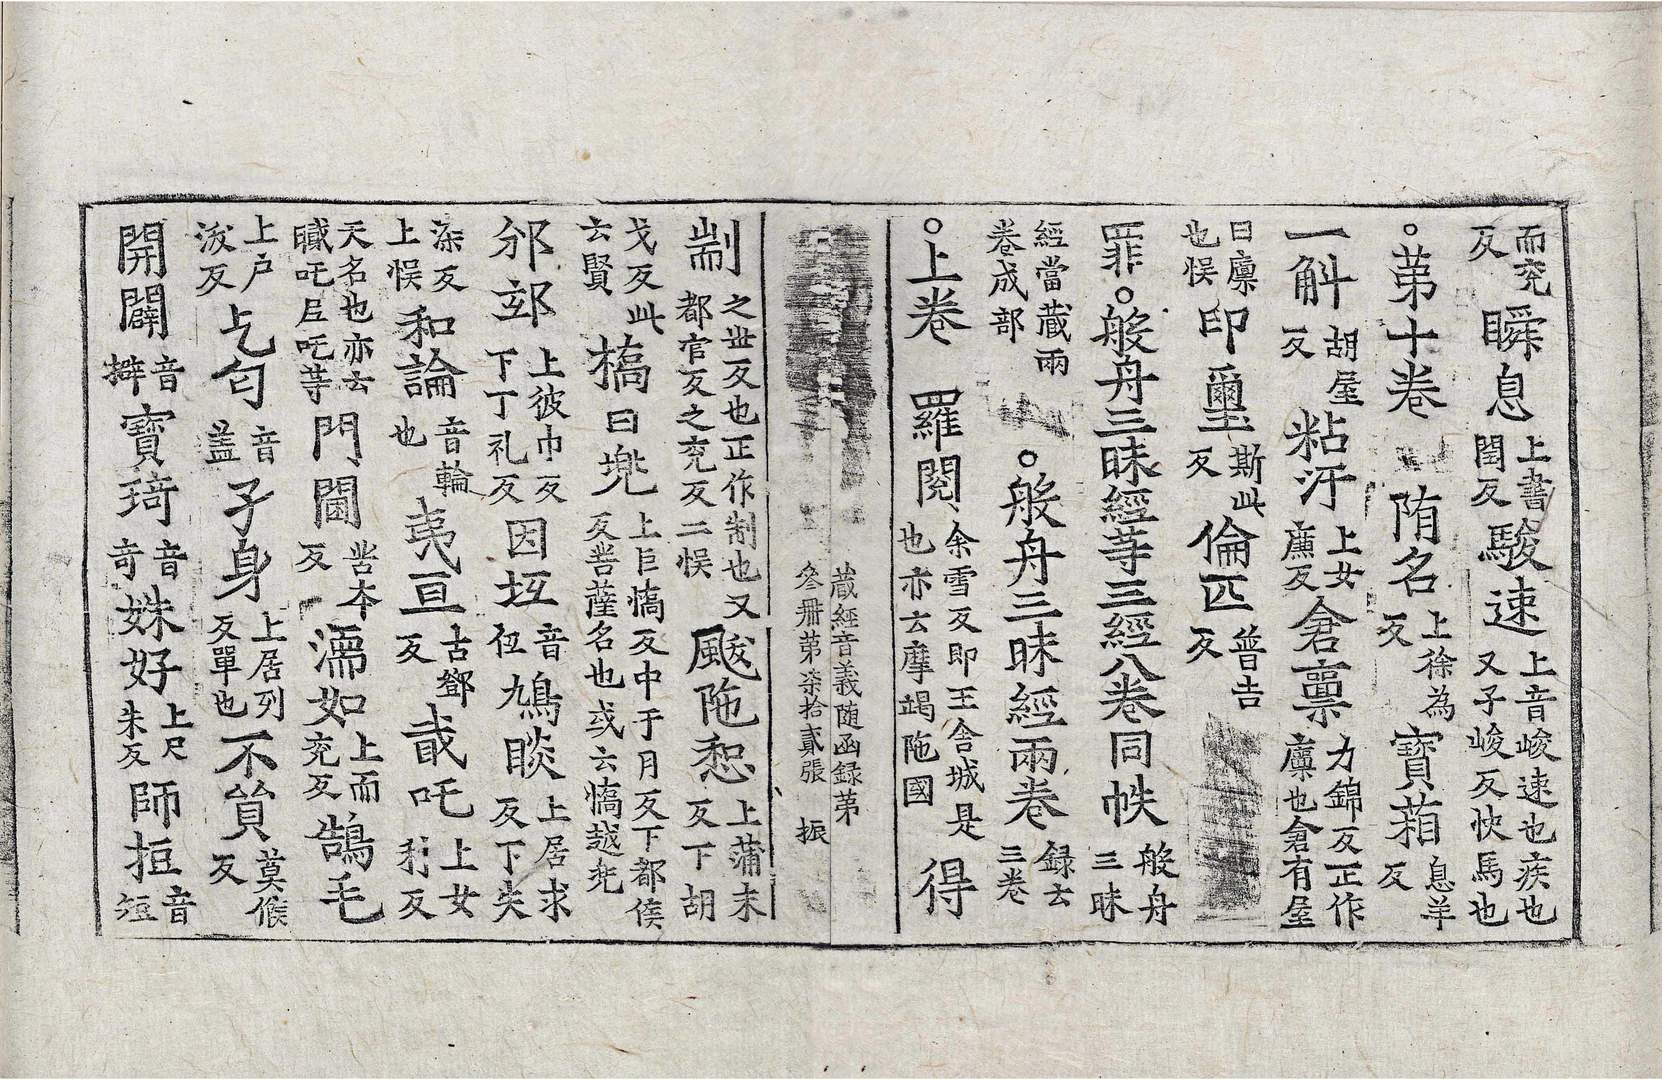 而兖反 瞬息 上書閏反 駿速 上音峻速也疾也又子峻反快馬也
○第十卷 隋名 上徐為反 寶葙 息羊反
一斛 胡屋反 粘汙 上女廉反 倉㐭 力錦反正作廩也倉有屋
曰廪也悮 印璽 斯此反 倫匹 普吉反
罪○般舟三昧經等三經八卷同帙 般舟三昧
經當蔵兩卷成部 ○般舟三昧經兩卷 録云三卷
○上卷 羅閱 余雪反即王舍城是也亦云摩竭陁國 得
蔵經音義随函録第
叄册第柒拾貳張 振
剬 之世反也正作制也又都官反之兖反二悮 颰陁惒 上蒲末反下胡
戈反此云賢 憍曰兠 上巨憍反中于月反下都侯反菩薩名也或云憍越兠
邠邧 上彼巾反下丁礼反 因坻 音伍 鳩睒 上居求反下失
染反上悮 和論 音輪也 夷亘 古鄧反 㦲吒 上女犲反
天名也亦云㘽吒𦣞吒等 門閫 苦本反 濡如 上而兖反 鵠毛
上户沷反 乞匃 音盖 孑身 上居列反單也 不貿 莫候反
開闢 音擗 寶琦 音竒 姝好 上尺朱反 師拒 音短